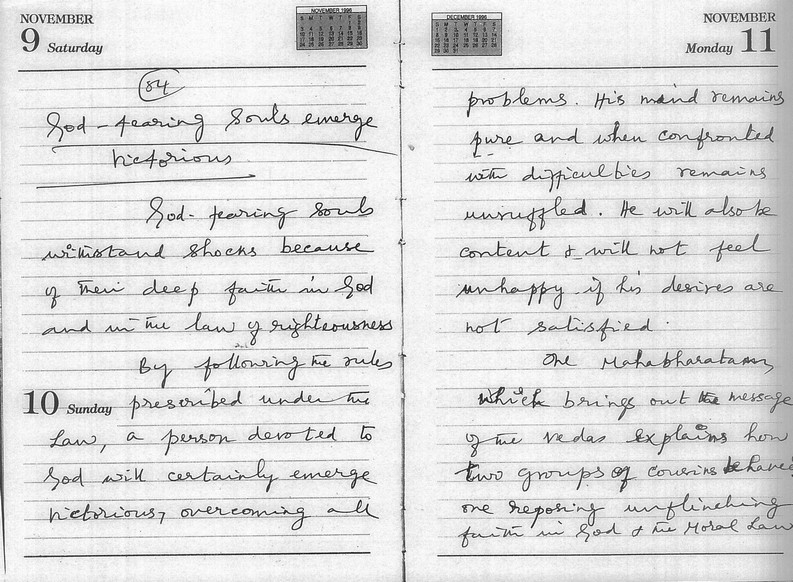 NOVEMBER
9 Saturday
NOVEMBER 1996
84
God-fearing Souls emerge
Victorious
God-fearing Souls
withstand shocks because
of their deep faith in God
and in the law of righteousness
By following the rules
10 Sunday prescribed under the
Law, a person devoted to
God will certainly emerge
victorious, overcoming all
DECEMBER 1996
NOVEMBER
Monday 11
problems. His mind remains
pure and when confronted
with difficulties remains
unruffled. He will also be
content & will not feel
unhappy if his desires are
not satisfied.
The Mahabharatam,
which brings out the message
of the Vedas explains how
two groups of cousins behaved
one reposing unflinching
faith in God & the Moral Law